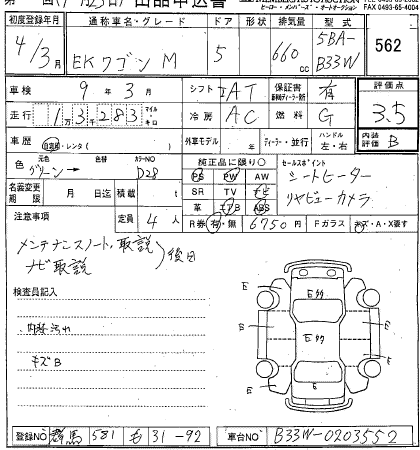 出品申込書
ヒーロー・メンバーズ・オートオークション FAX 0493-65-4004
初度登録年月 通称車名・グレード ドア 形状 排気量 型式
4/3月 EKワゴン M 5 660cc 5BA-B33W 562
車検 9年3月 シフト IAT 保証書 有 評価点
走行 1万3千283 マイル キロ 冷房 AC 燃料 G 3.5
車歴 自家用・レンタ( ) 外車モデル 年 ディーラー・並行 ハンドル 左・右 内装評価 B
色 元色 グリーン→ 色替 カラーNO D28 純正品に限り○ セールスポイント
PS PW AW シートヒーター
名義変更期限 月 日迄 積載 t SR TV ナビ リヤビューカメラ
革 エアB ABS
注意事項 定員 4人 R券 有・無 6750円 Fガラス キズ・A・X要す
メンテナンスノート、取説
ナビ取説 後日
検査員記入
内装汚れ
キズB
E E E E E E E
登録NO 群馬 581 も 31-92 車台NO B33W-0203552